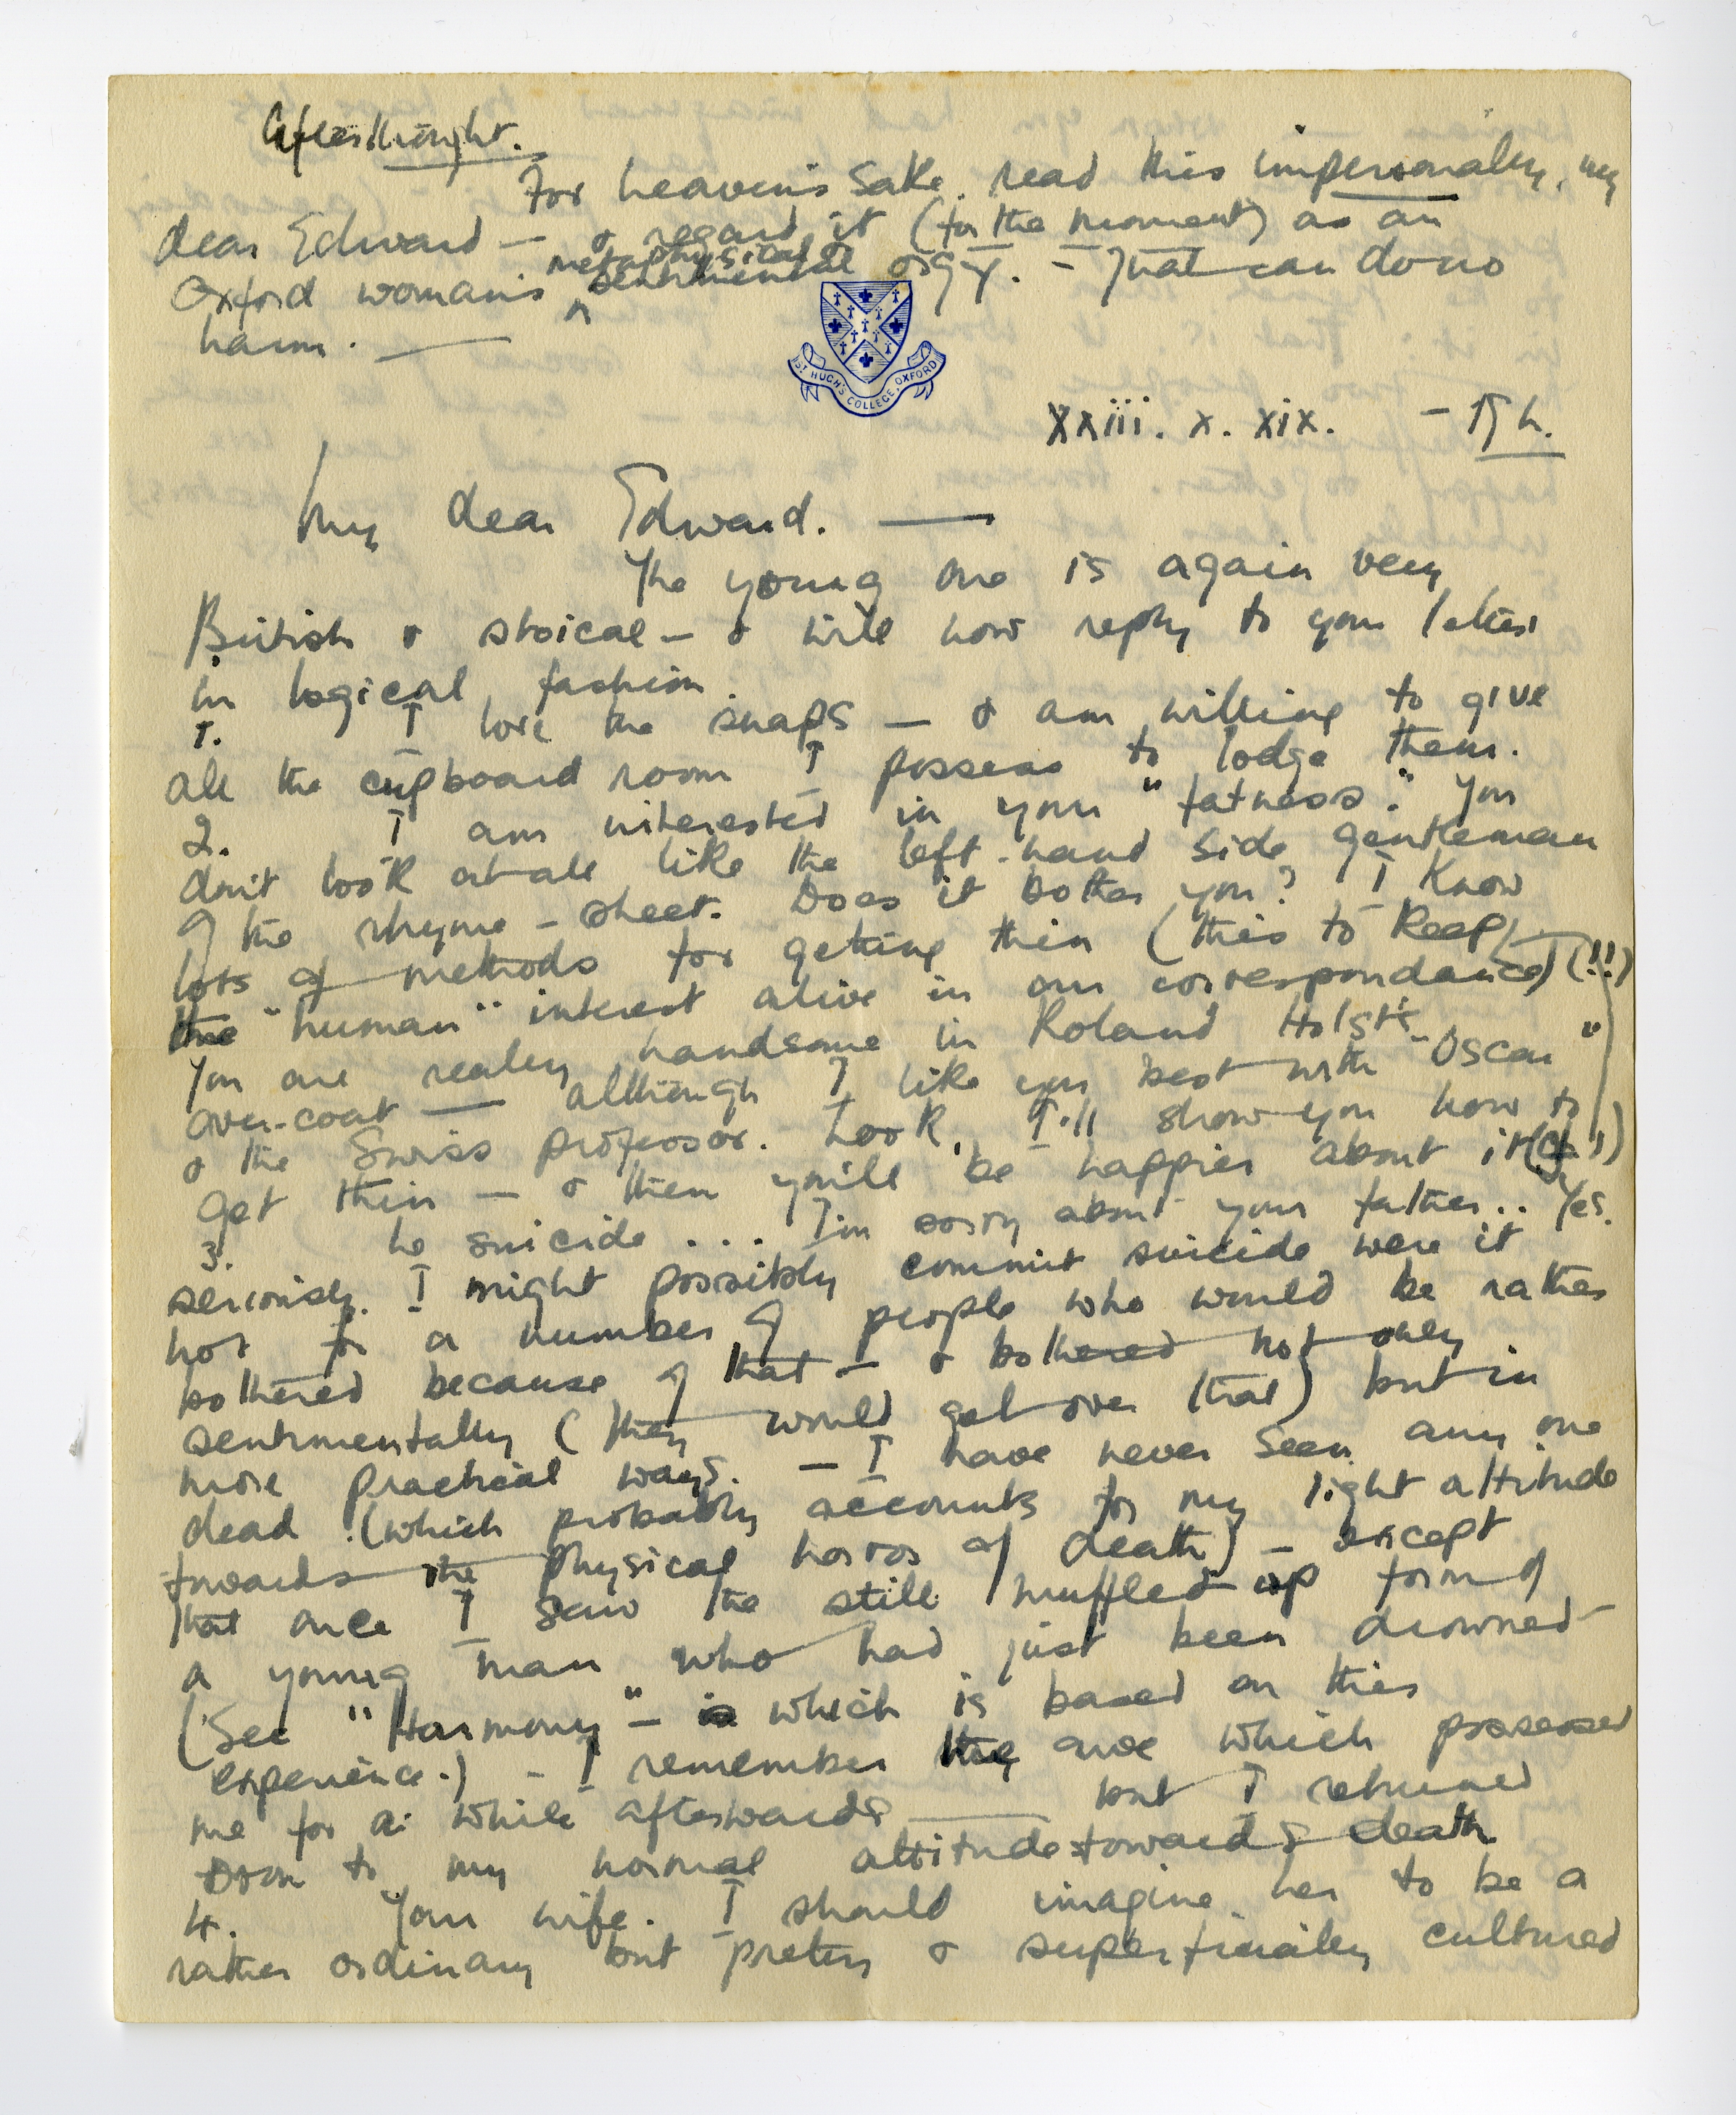 Afterthought.
For heaven's sake, read this impersonally, my
dear Edward — & regard it (for the moment) as an
Oxford woman's metaphysical & sentimental orgy. — That can do no
harm. —
ST HUGH'S COLLEGE, OXFORD
xxiii. x. xix. — Th.
My dear Edward. —
The young one is again very
British & stoical — & will now reply to your letter
in logical fashion.
1. I love the snaps — & am willing to give
all the cupboard room I possess to lodge them.
2. I am interested in your "fatness." You
don't look at all like the left-hand side gentleman
of the rhyme-sheet. Does it bother you? I know
lots of methods for getting thin (this to keep
the "human" interest alive in our correspondance) (!!)
You are really handsome in Roland Holst's "Oscar"
over-coat — although I like you best with
& the Swiss professor. Look, I'll show you how to
get thin — & then you'll be happier about it (!)
3. To suicide ... I'm sorry about your father.. Yes.
seriously. I might possibly commit suicide were it
not for a number of people who would be rather
bothered because of that — & bothered not only
sentimentally (they would get over that) but in
more practical ways. — I have never seen any one
dead (which probably accounts for my light attitude
towards the physical horror of death) — except
that once I saw the still muffled up form of
a young man who had just been drowned
(See "Harmony" — which is based on this
experience.) — I remember the awe which possessed
me for a while afterwards — but I returned
soon to my normal attitude towards death
4. Your wife. I should imagine her to be a
rather ordinary but pretty & superficially cultured